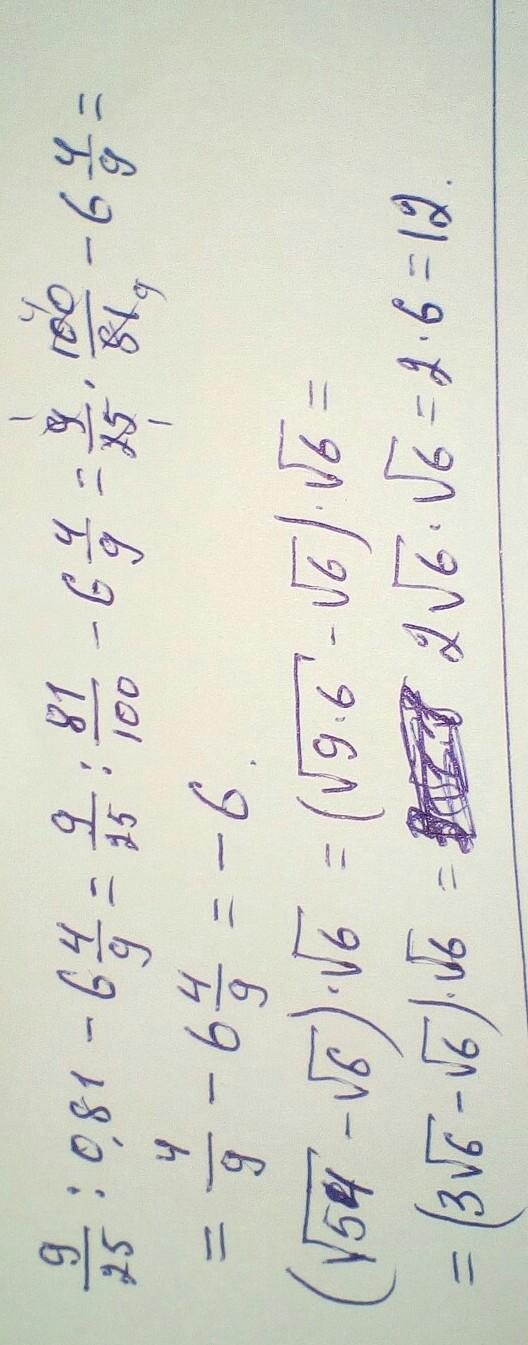 9/25 : 0,81 - 6 4/9 = 9/25 : 81/100 - 6 4/9 = 9/25 · 100/81 - 6 4/9 =
= 4/9 - 6 4/9 = -6.
(√54 - √6) · √6 = (√9·6 - √6) · √6 =
= (3√6 - √6) · √6 = 2√6 · √6 = 2·6 = 12.